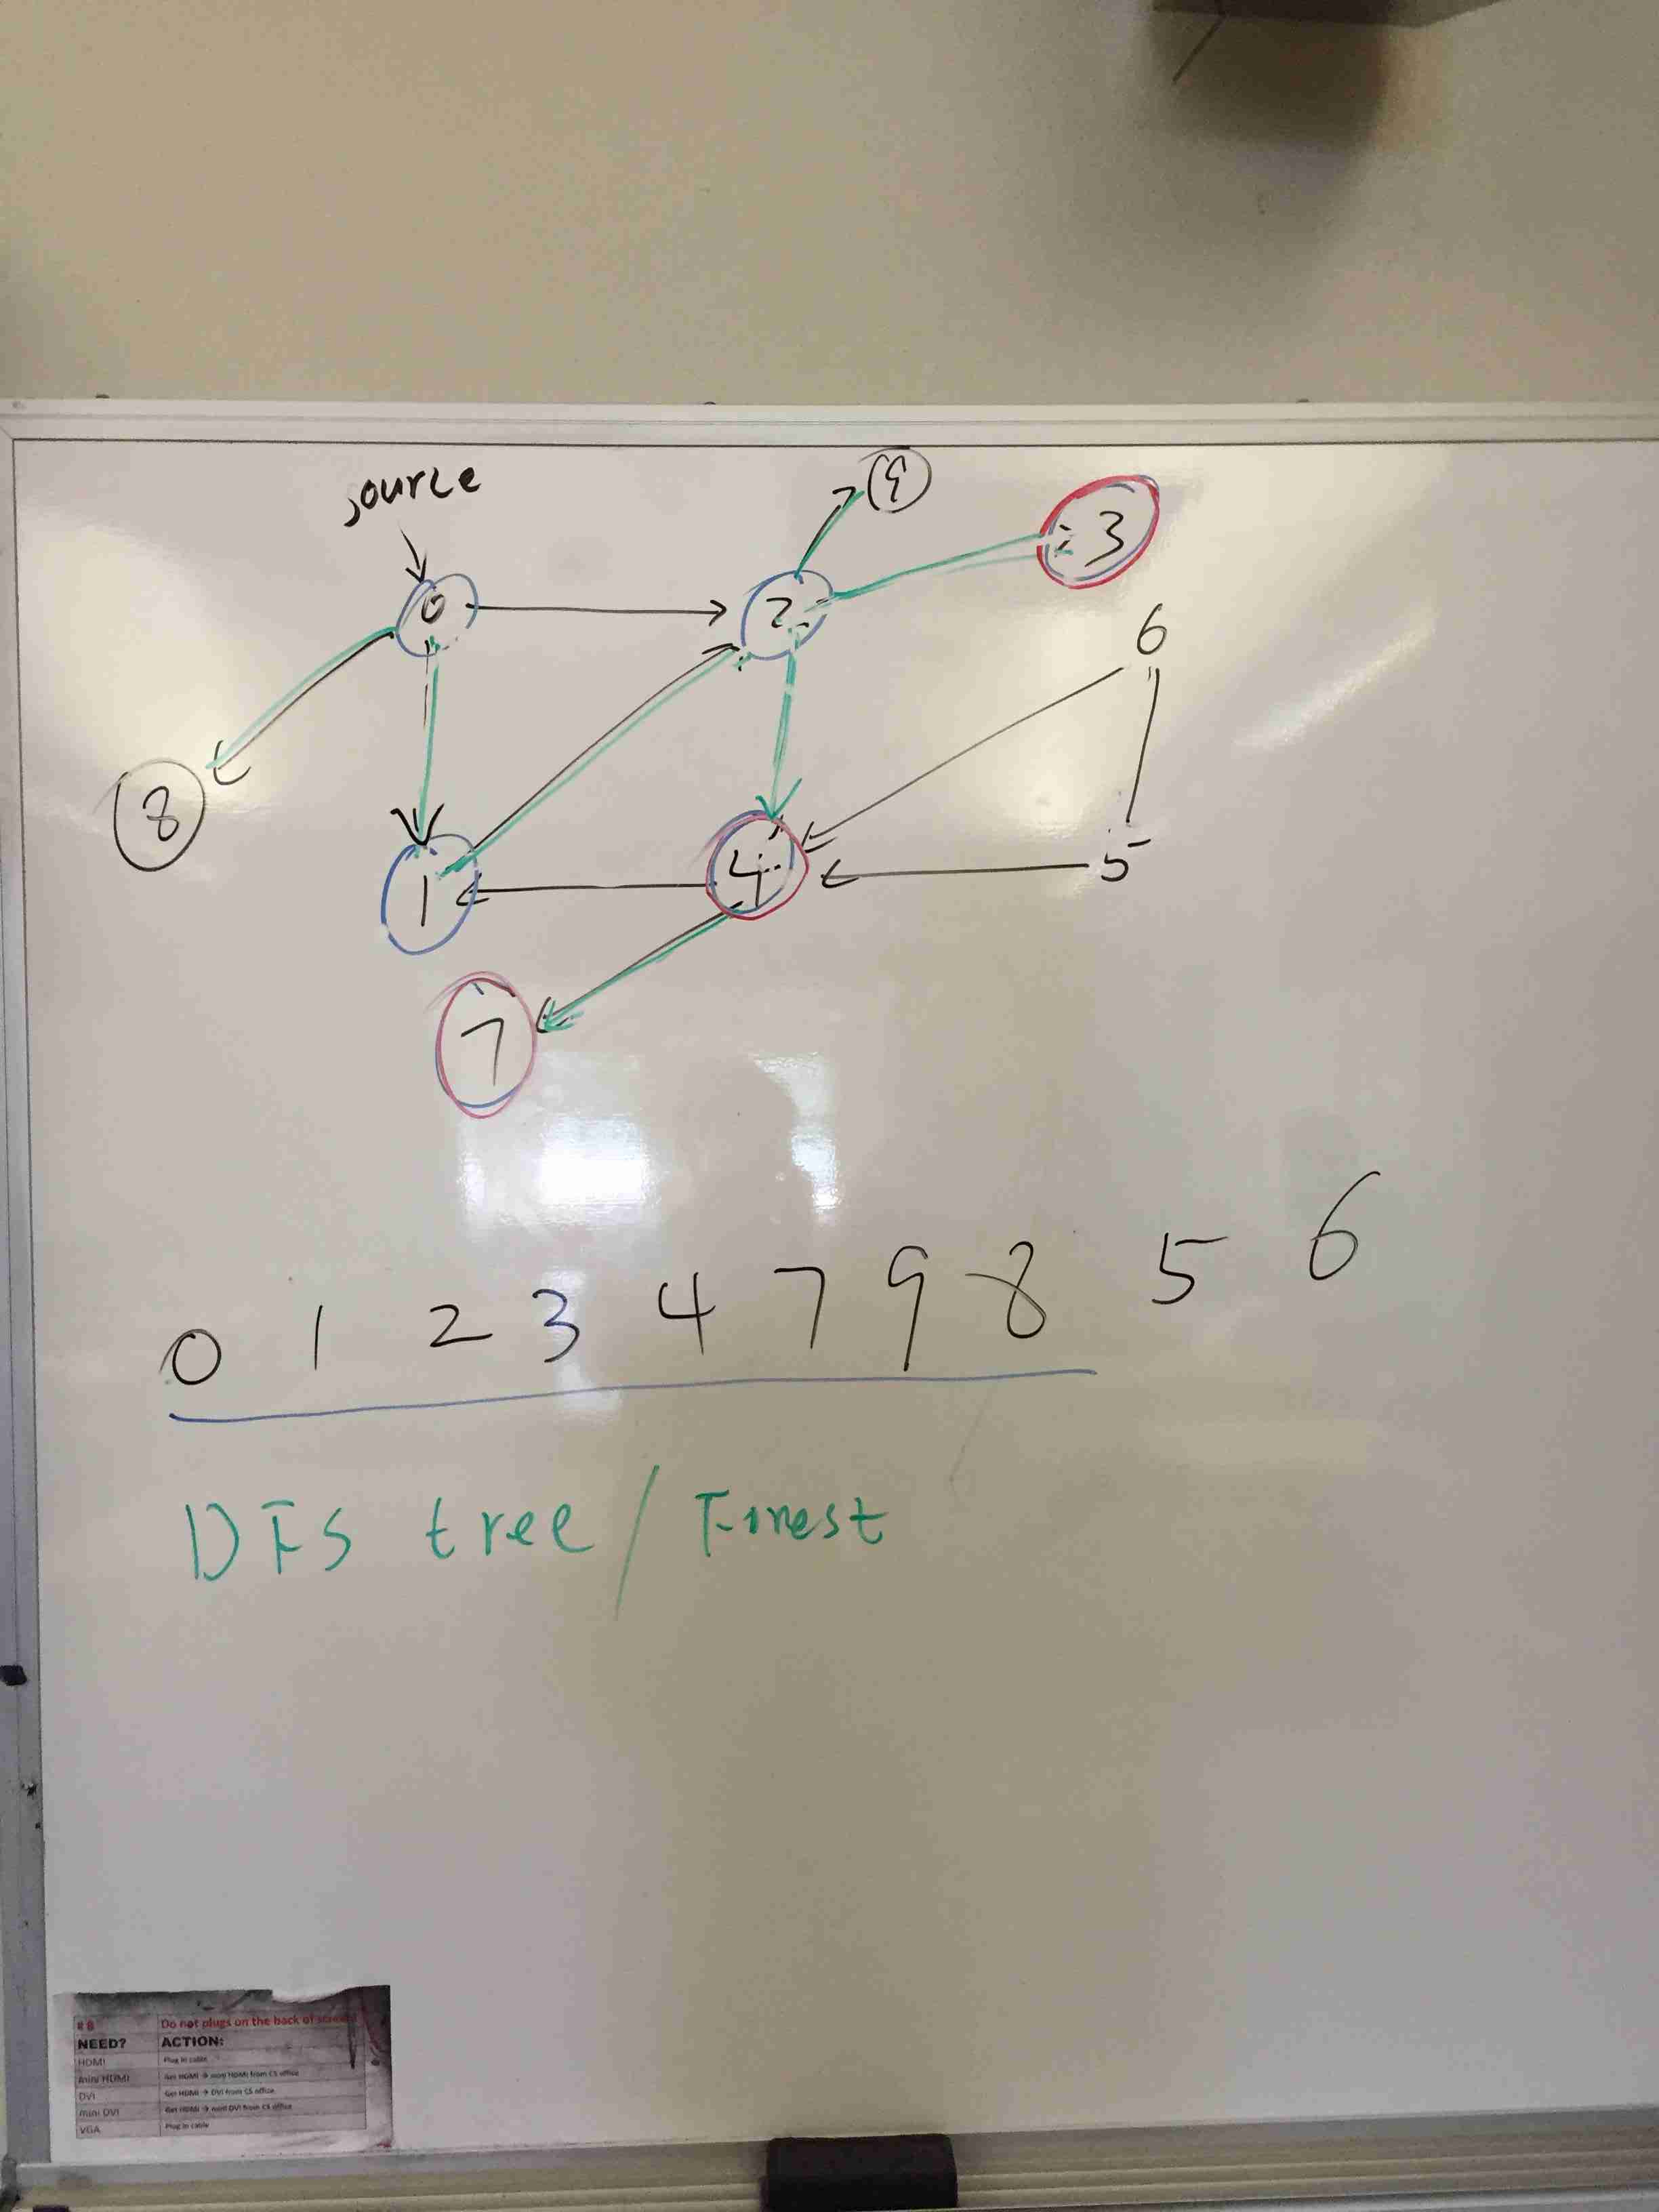 source
9
3
0
2
6
8
1
4
5
7
0 1 2 3 4 7 9 8 5 6
DFS tree / Forest
#8 Do not plugs on the back of
NEED? ACTION:
HDMI Plug in cable
mini HDMI Get HDMI → mini HDMI from CS office
DVI Get HDMI → DVI from CS office
mini DVI Get HDMI → mini DVI from CS office
VGA Plug in cable